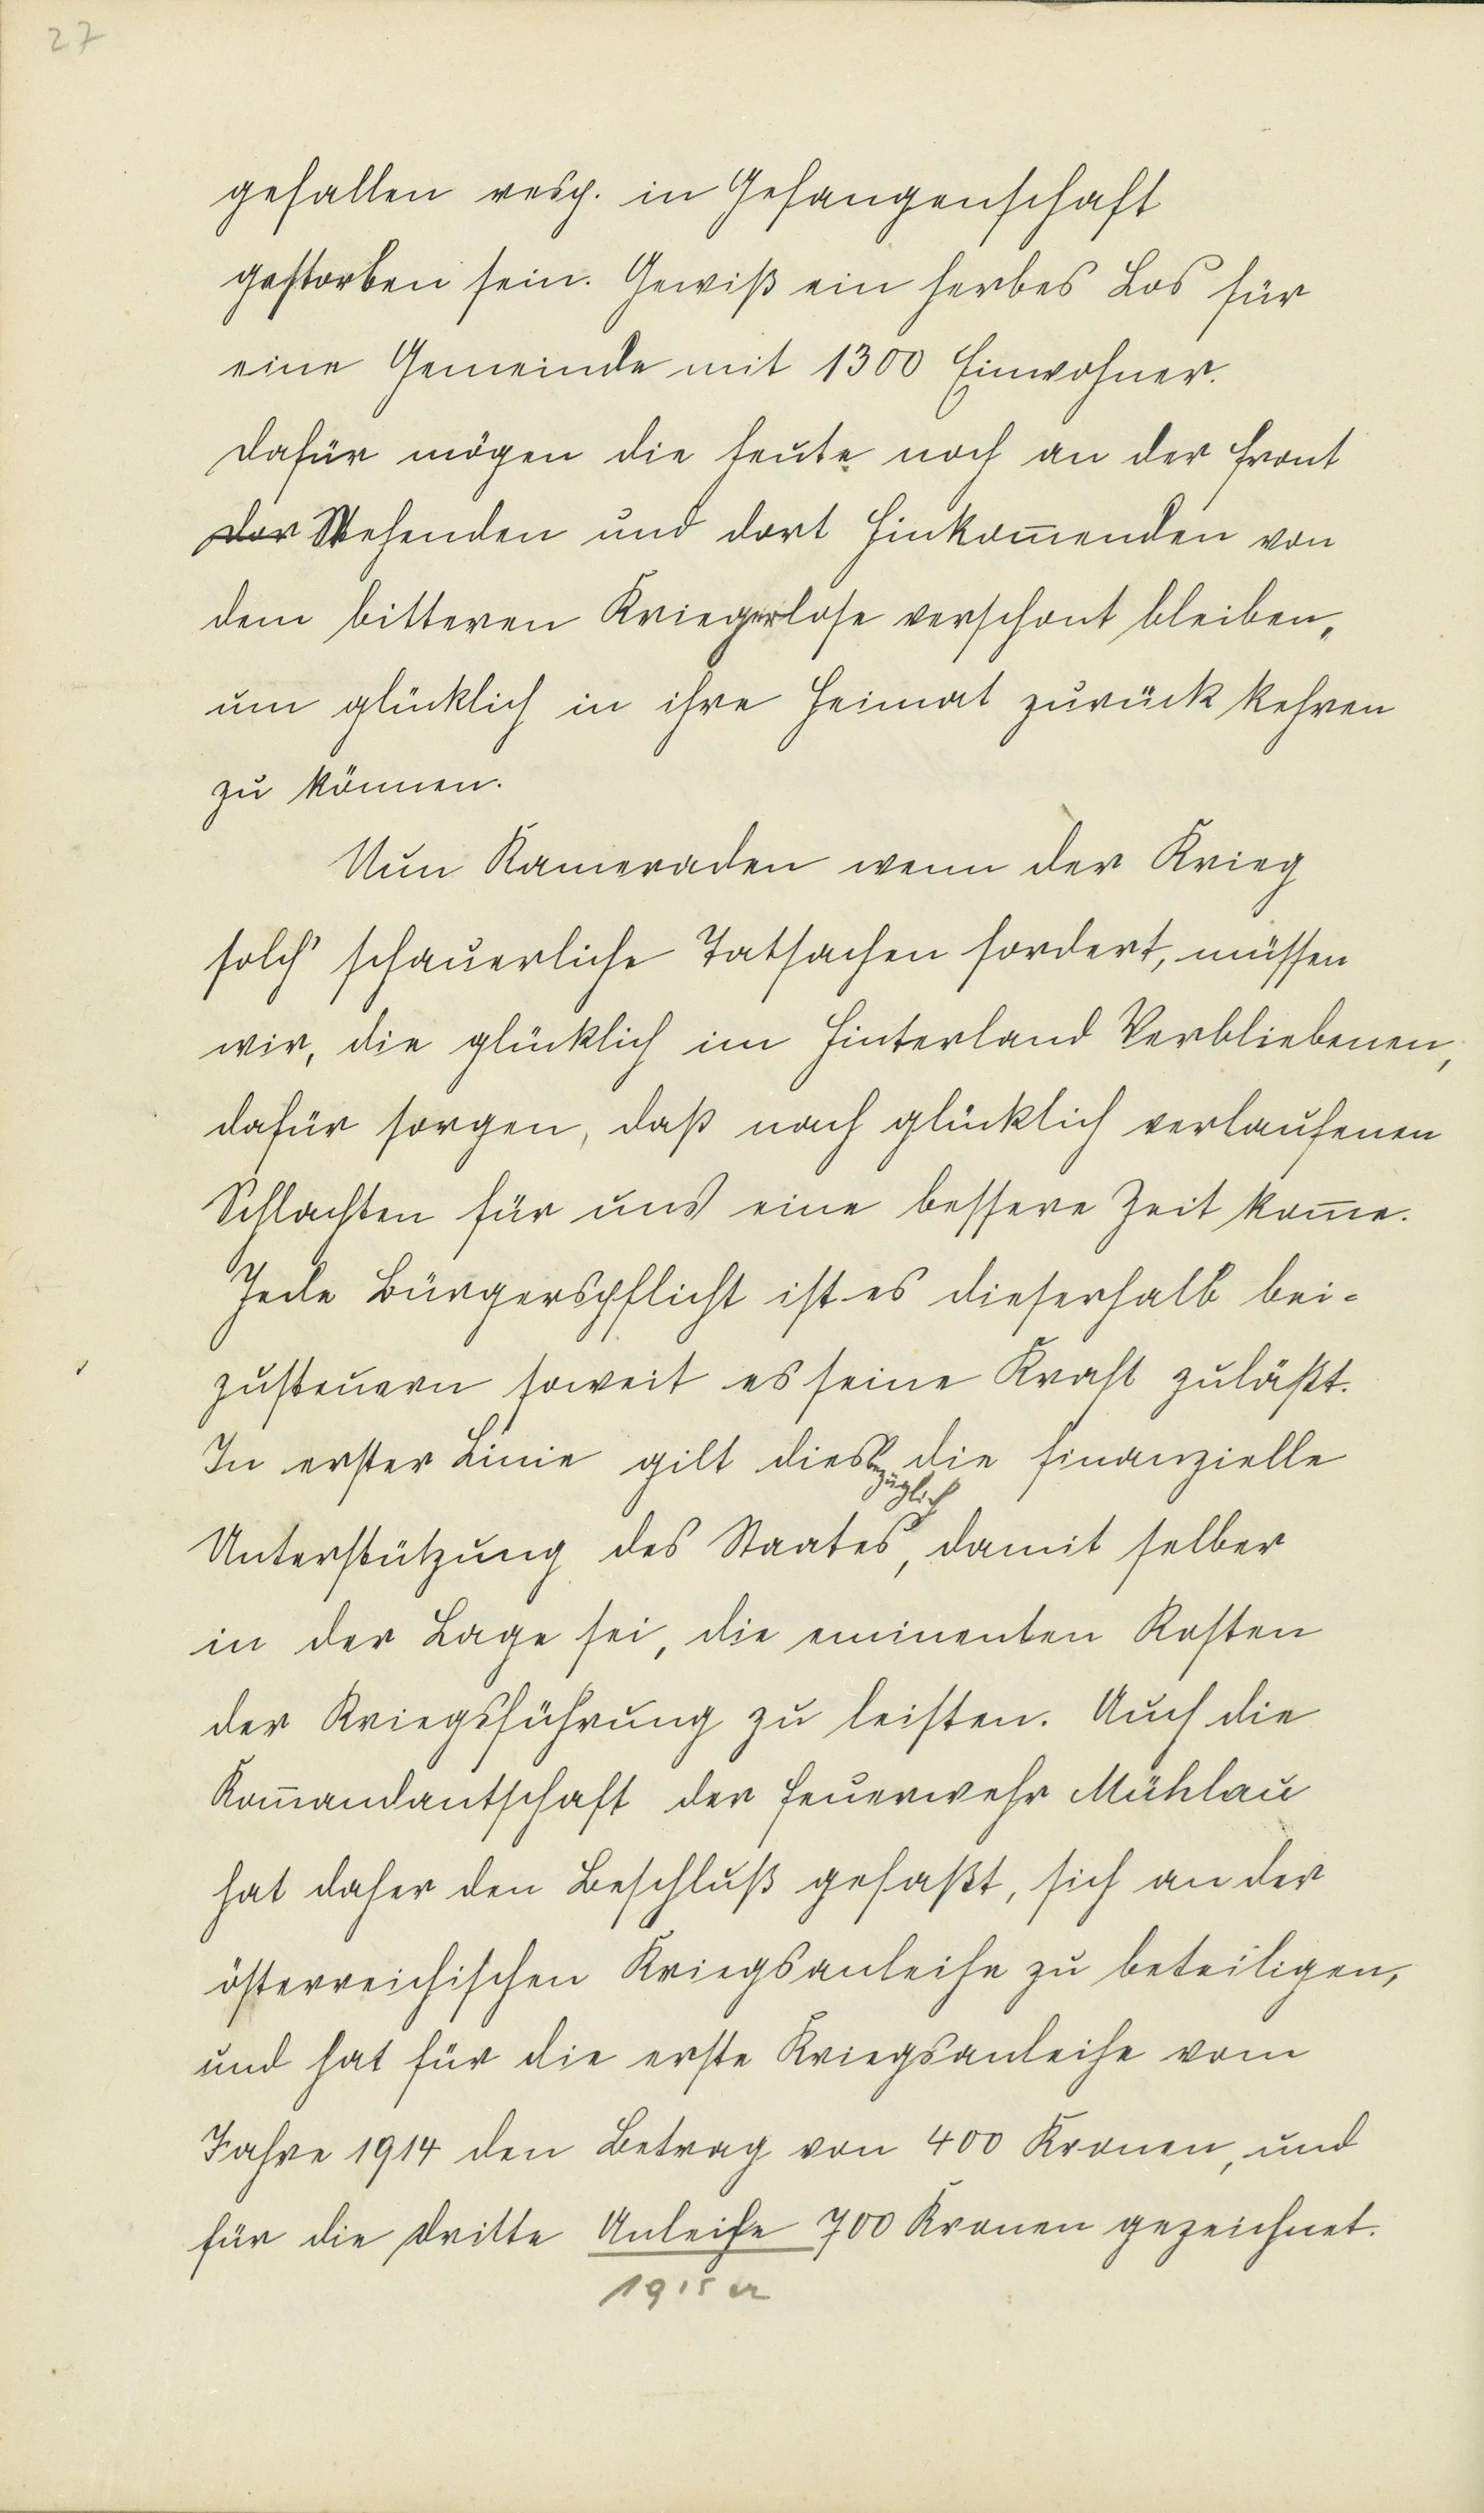 27
gefallen resp. in Gefangenschaft
gestorben sein. Gewiß ein herbes Los für
eine Gemeinde mit 1300 Einwohner.
Dafür mögen die heute noch an der Front
dor Stehenden und dort Hinkom̅enden von
dem bitteren Kriegerlose verschont bleiben,
um glücklich in ihre Heimat zurück kehren
zu können.
Nun Kameraden wenn der Krieg
solch' schauerliche Tatsachen fordert, müssen
wir, die glücklich im Hinterland Verbliebenen,
dafür sorgen, daß nach glücklich verlaufenen
Schlachten für uns eine bessere Zeit kom̅e.
Jede Bürgerspflicht ist es dieserhalb bei-
zusteuern soweit es seine Kraft zuläßt.
In erster Linie gilt dies bezüglich die finanzielle
Unterstützung des Staates, damit selber
in der Lage sei, die eminenten Kosten
der Kriegsführung zu leisten. Auch die
Kom̅andantschaft der Feuerwehr Mühlau
hat daher den Beschluß gefaßt, sich an der
österreichischen Kriegsanleihe zu beteiligen,
und hat für die erste Kriegsanleihe vom
Jahre 1914 den Betrag von 400 Kronen, und
für die dritte Anleihe 700 Kronen gezeichnet.
1915 er